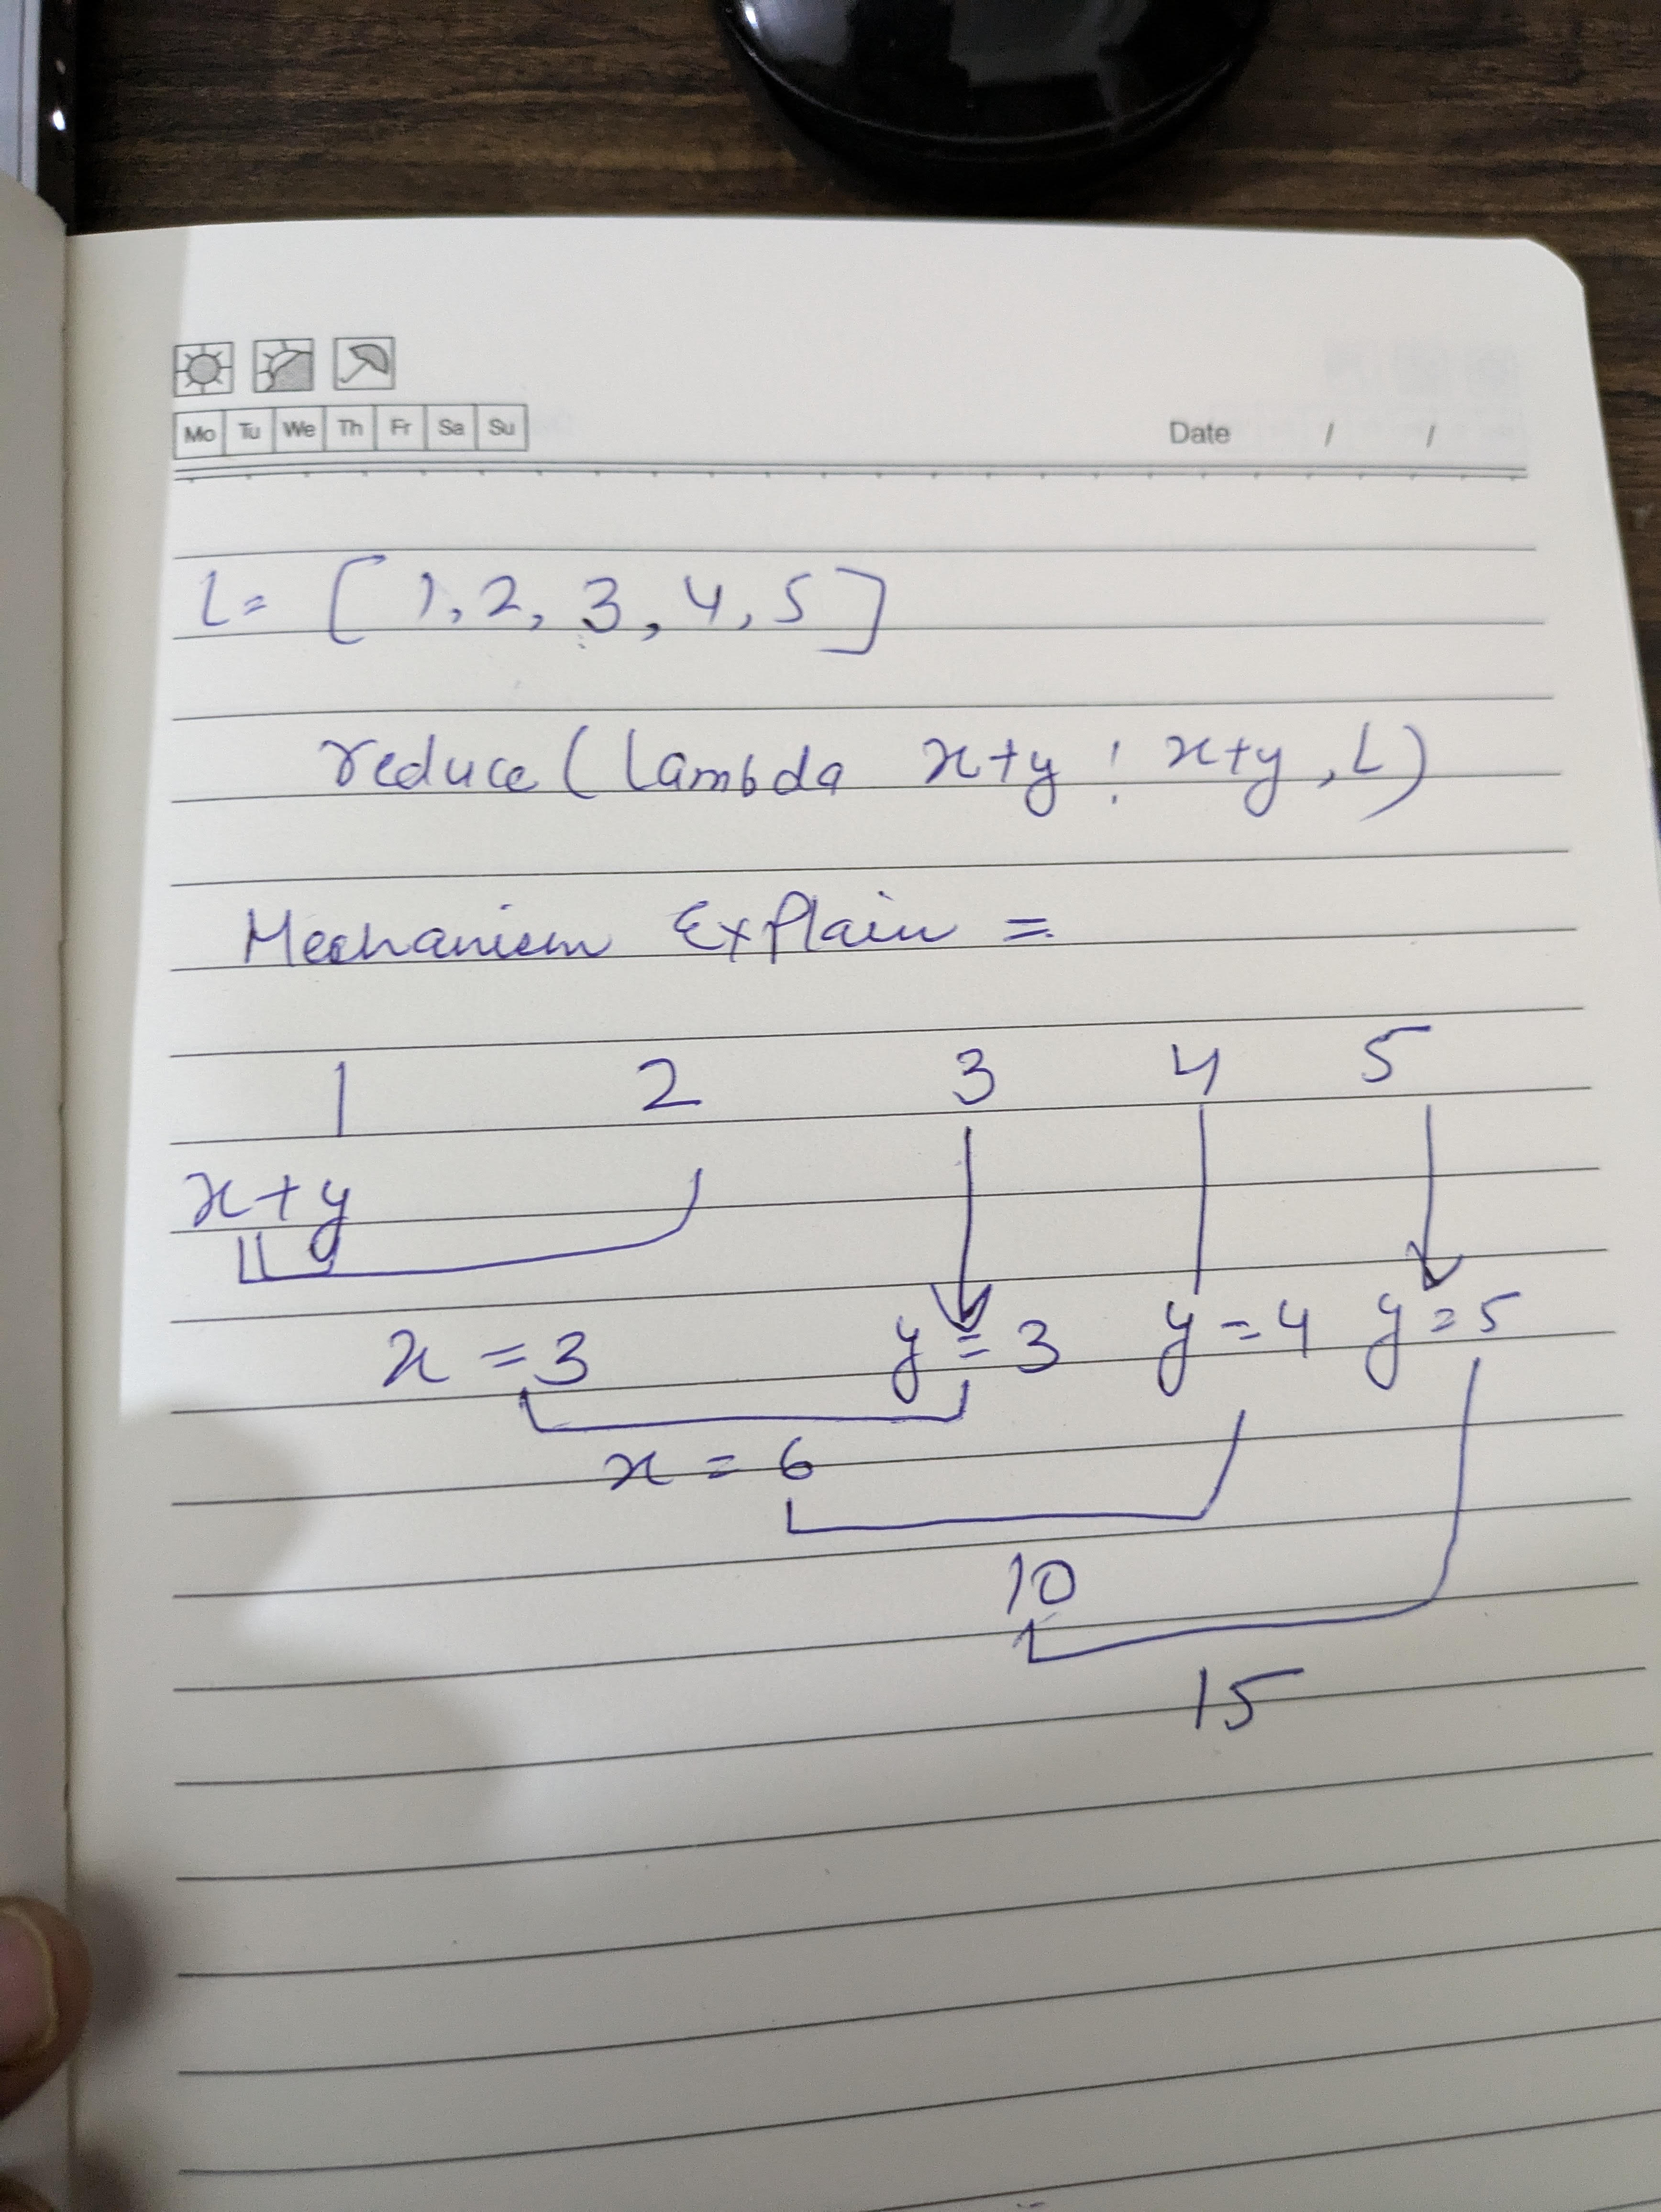 Mo Tu We Th Fr Sa Su
Date / /
L= [ 1, 2, 3, 4, 5 ]
reduce ( lambda x+y : x+y , L )
Mechanism Explain =
1 2 3 4 5
x+y
x = 3 y = 3 y = 4 y = 5
x = 6
10
15